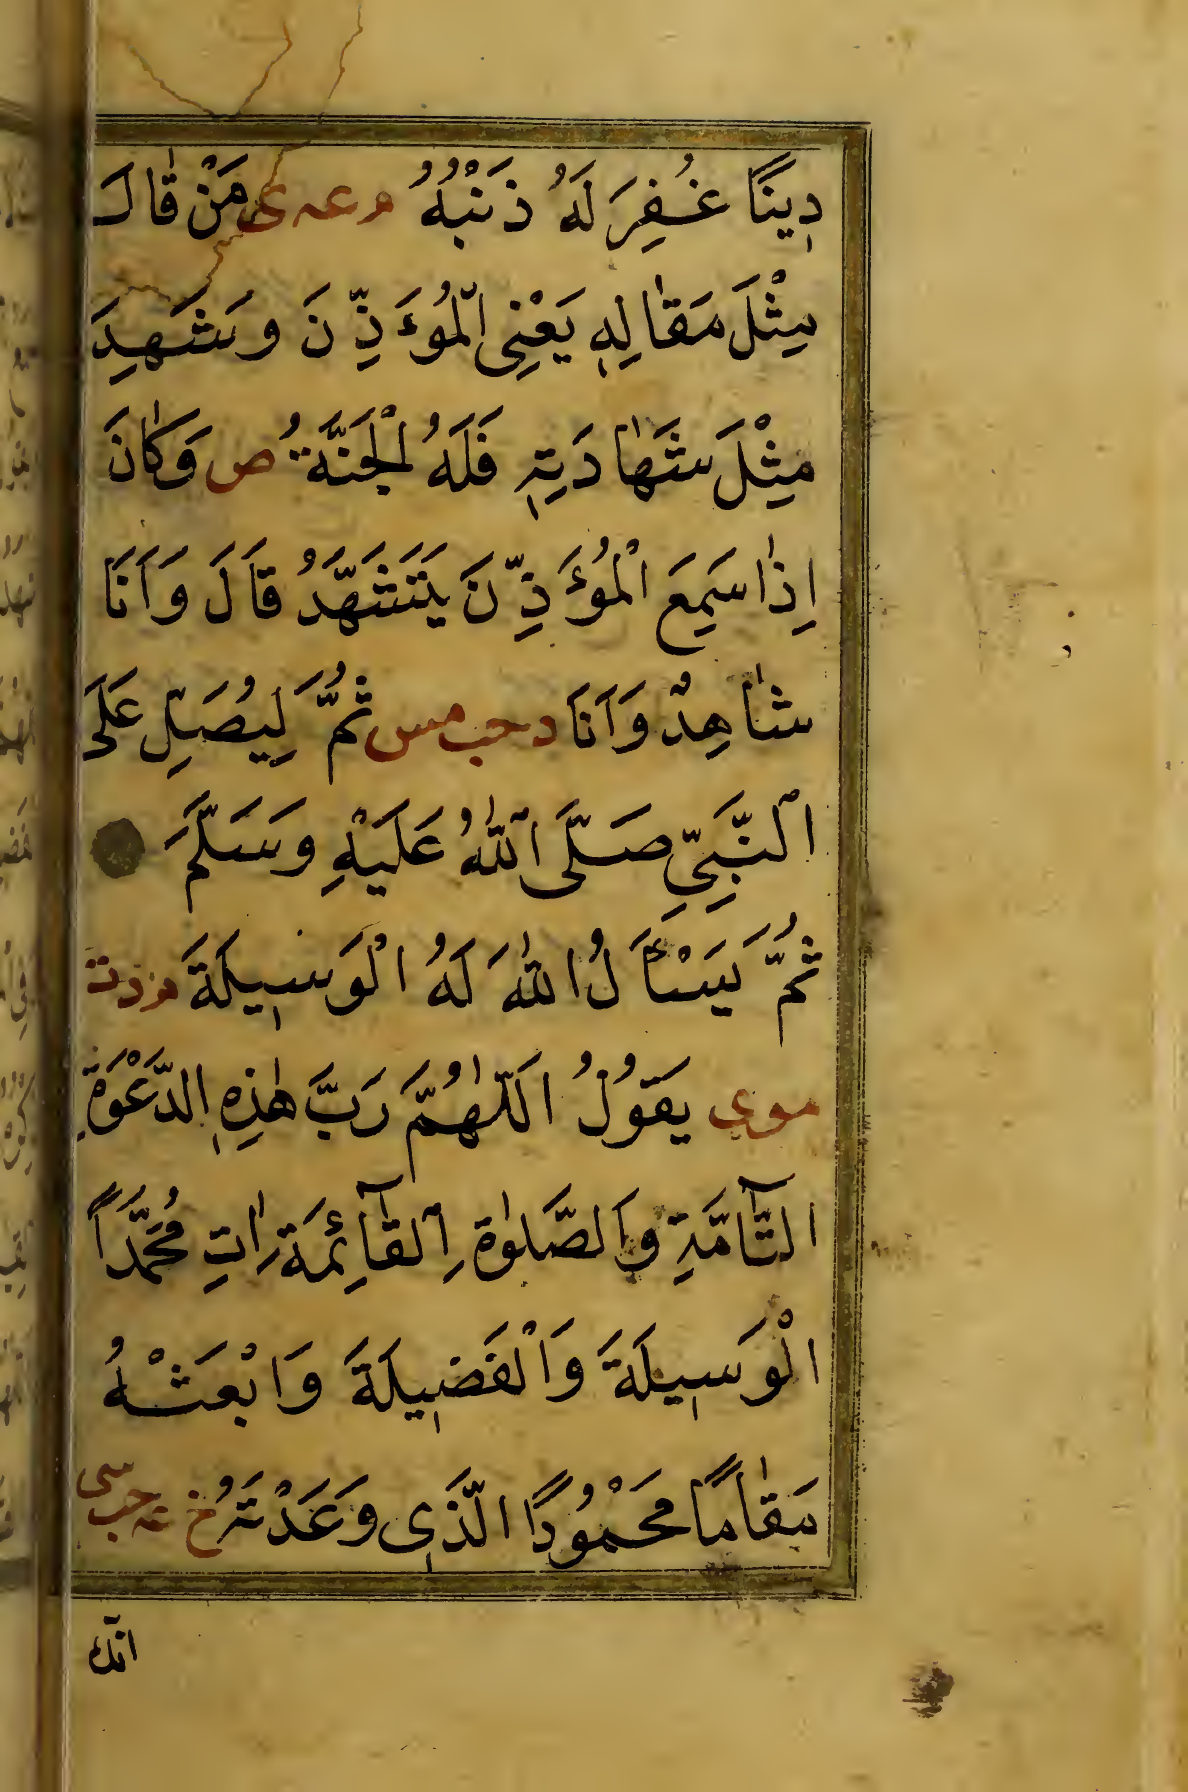 دِينًا غُفِرَ لَهُ ذَنْبُهُ م عه ى مَنْ قَالَ
مِثْلَ مَقَالِهِ يَعْنِي الْمُؤَذِّنَ وَشَهِدَ
مِثْلَ شَهَادَتِهِ فَلَهُ الْجَنَّةُ ص وَكَانَ
اِذَا سَمِعَ الْمُؤَذِّنَ يَتَشَهَّدُ قَالَ وَاَنَا
شَاهِدٌ وَاَنَا د حب مس ثُمَّ لِيُصَلِّ عَلَى
النَّبِيِّ صَلَّى اللّٰهُ عَلَيْهِ وَسَلَّمَ
ثُمَّ يَسْأَلُ اللّٰهَ لَهُ الْوَسِيلَةَ م د ت
س وى يَقُولُ اَللّٰهُمَّ رَبَّ هٰذِهِ الدَّعْوَةِ
التَّآمَّةِ وَالصَّلٰوةِ الْقَآئِمَةِ اٰتِ مُحَمَّدًا
الْوَسِيلَةَ وَالْفَضِيلَةَ وَابْعَثْهُ
مَقَامًا مَحْمُودًا الَّذِي وَعَدْتَهُ خ عه حب سى
انك